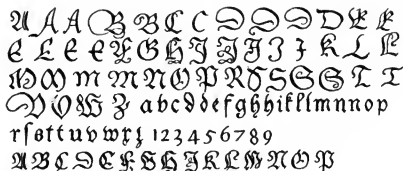 A A A B B C C D D D D E E
E E E E F G H J J J J K L L
M M M M N O P R S S S S T T
V V W Z a b c d d e f g h h i k l l m n n o p
r ſ s t t u v w x z 1 2 3 4 5 6 7 8 9
A B C D E F G H J K L M N O P